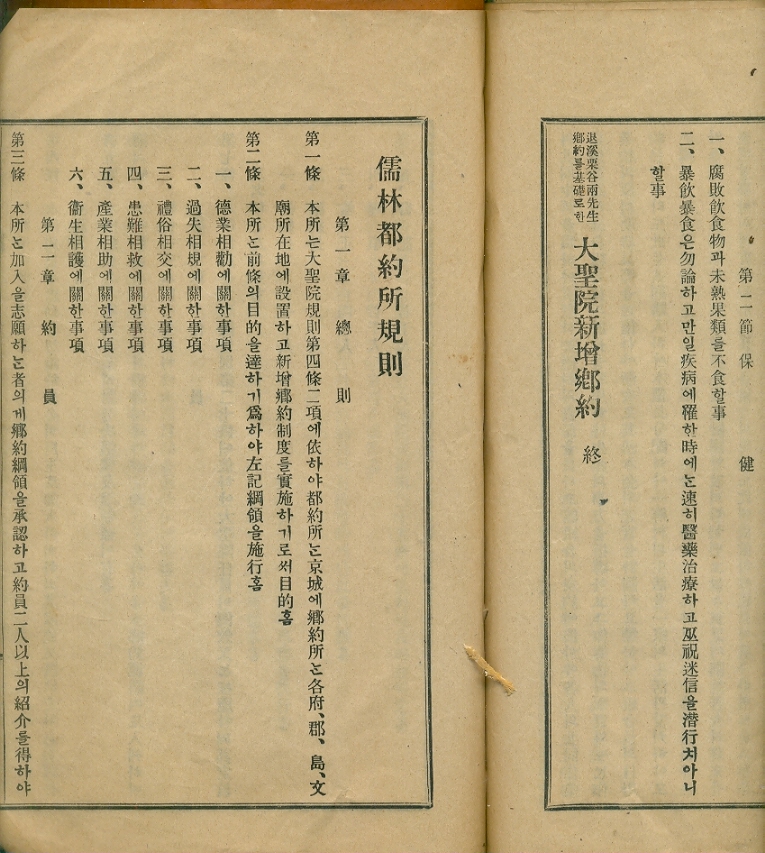 第二節 保健
一、腐敗飮食物과未熟果類를不食할事
二、暴飮暴食은勿論하고만일疾病에罹한時에는速히醫藥治療하고巫祝迷信을潛行치아니
할事
退溪栗谷兩先生
鄕約를基礎로한
大聖院新增鄕約 終
儒林都約所規則
第一章 總則
第一條 本所는大聖院規則第四條二項에依하야都約所는京城에鄕約所는各府、郡、島、文
廟所在地에設置하고新增鄕約制度를實施하기로써目的홈
第二條 本所는前條의目的을達하기爲하야左記綱領을施行홈
一、德業相勸에關한事項
二、過失相規에關한事項
三、禮俗相交에關한事項
四、患難相救에關한事項
五、產業相助에關한事項
六、衞生相護에關한事項
第二章 約員
第三條 本所는加入을志願하는者의게鄕約綱領을承認하고約員二人以上의紹介를得하야